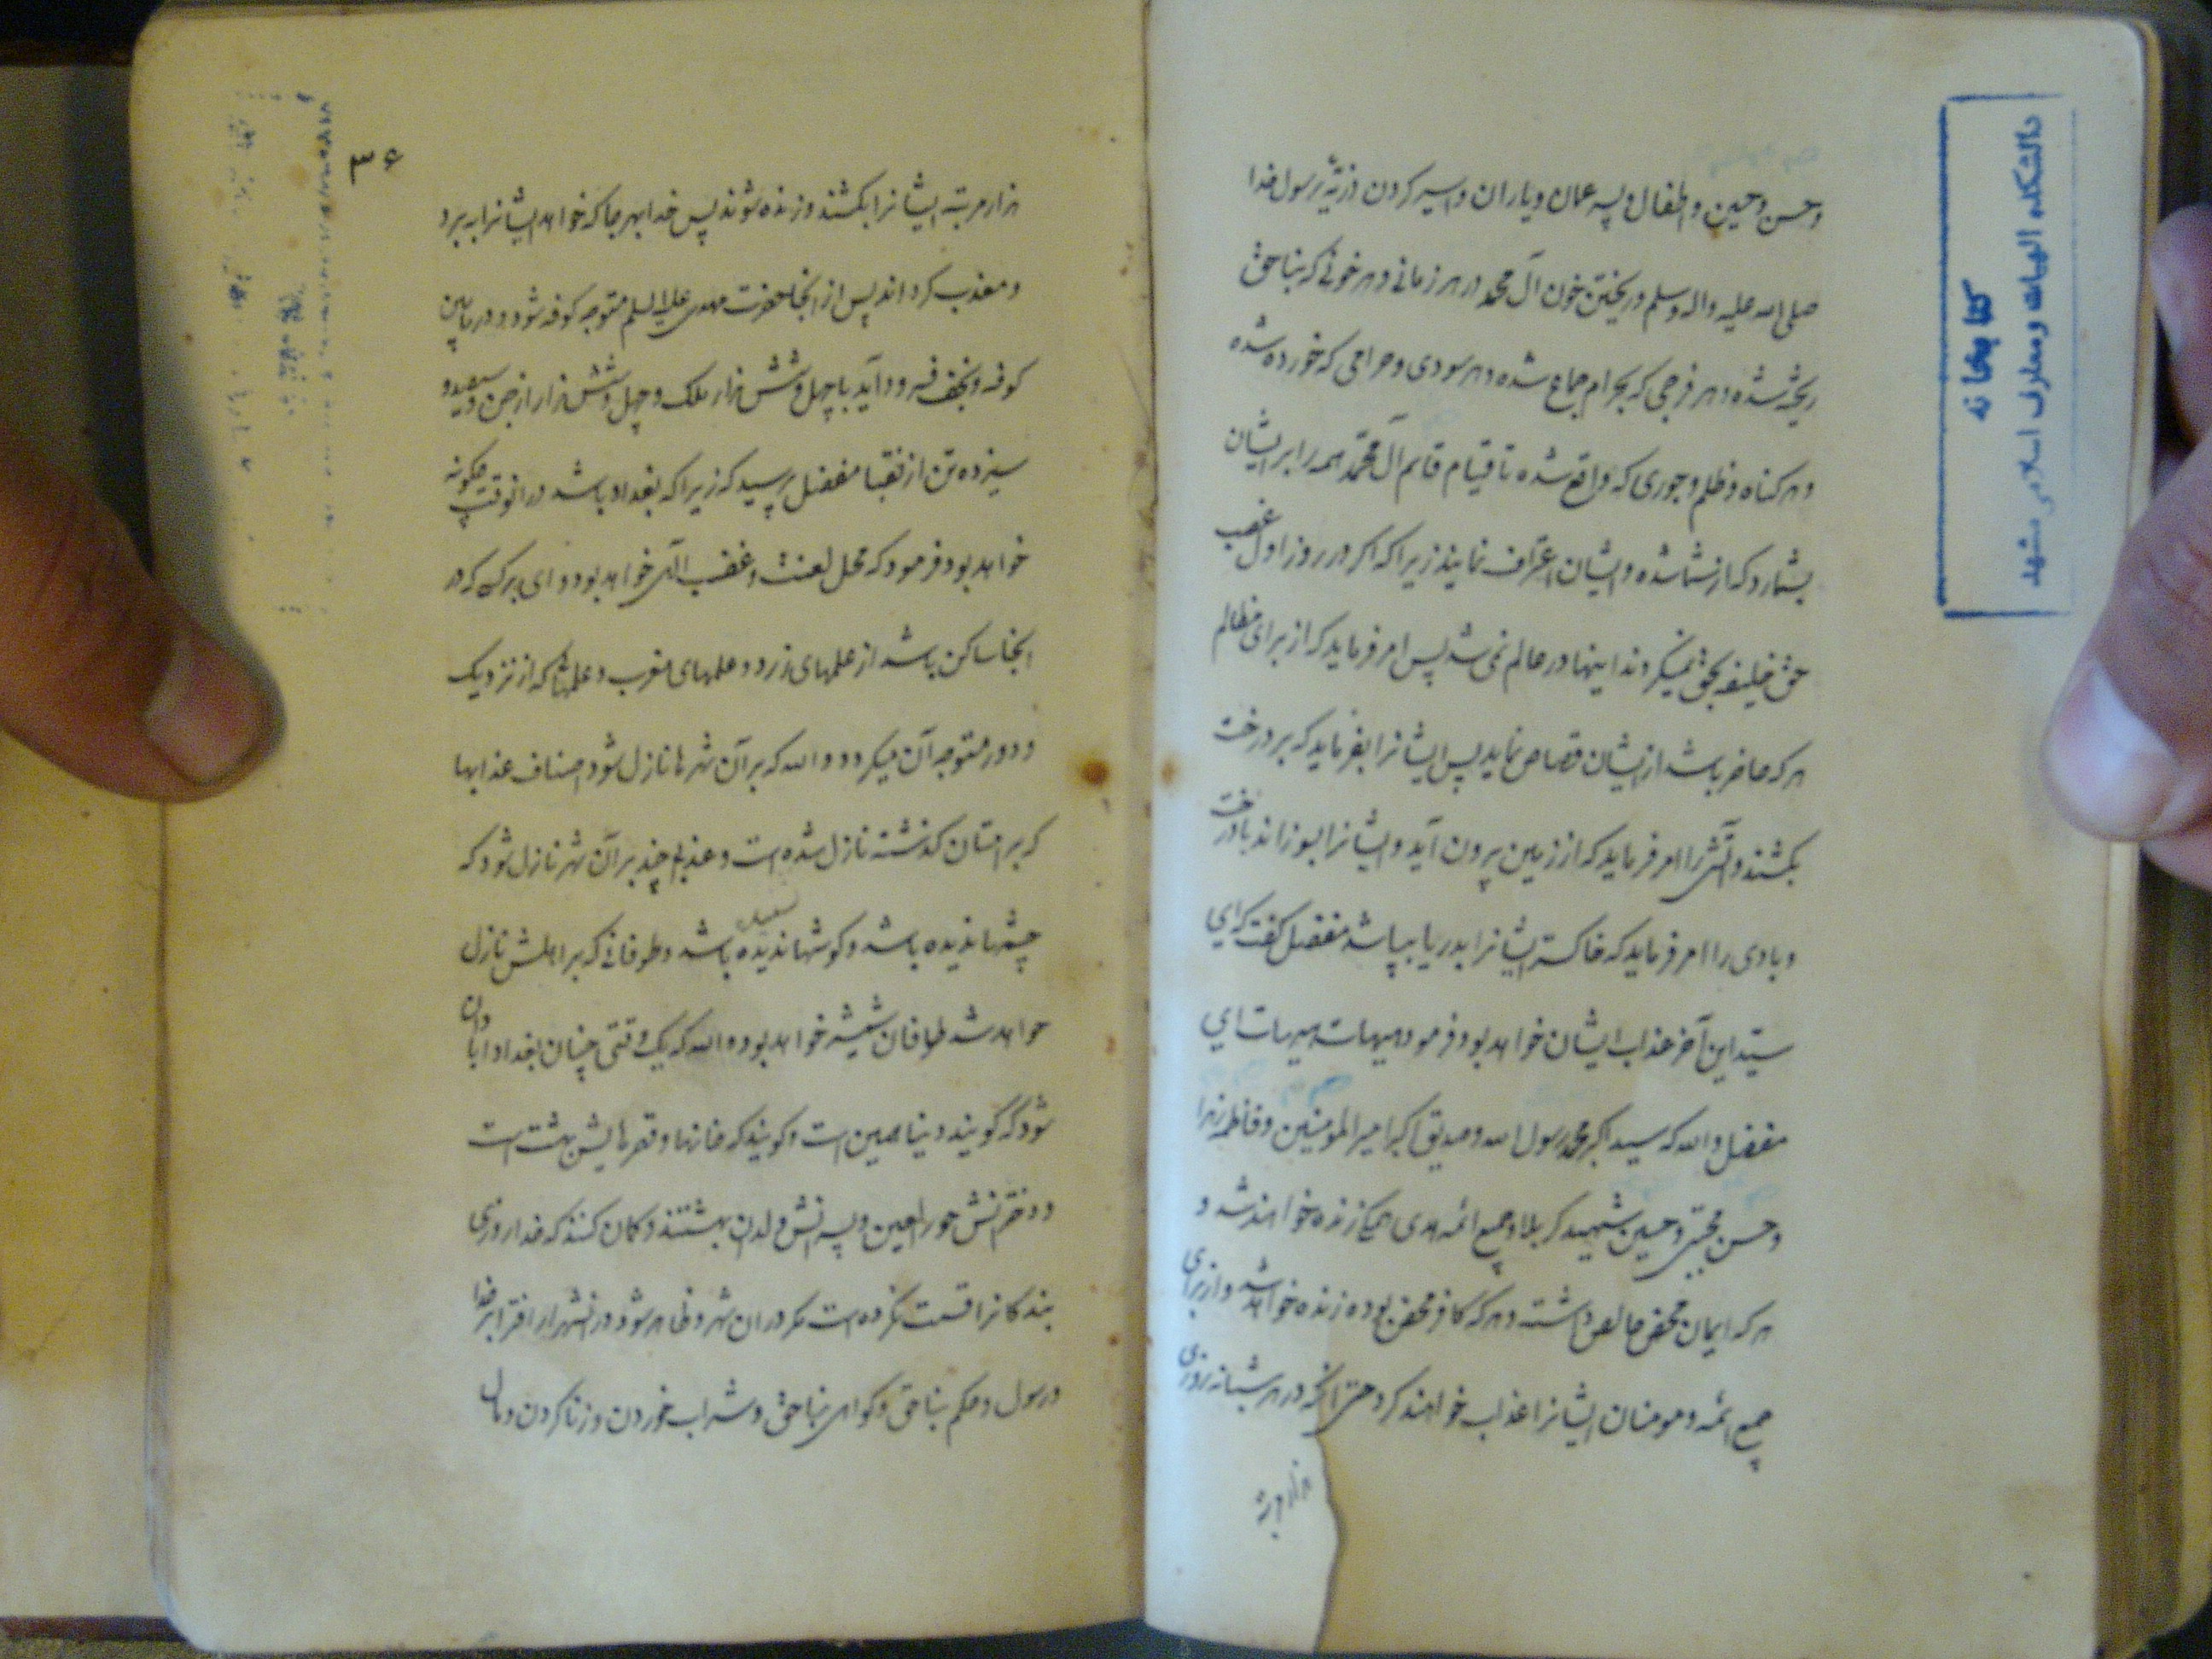 وحسن وحسین و اطفال و پسر عمان و یاران و اسیر کردن ذریّه رسول خدا
صلی الله علیه واله وسلم و ریختن خون آل محمد در هر زمانی و هر خونی که بناحق
ریخته شده و هر فرجی که بحرام جماع شده و هر سودی و حرامی که خورده شده
و هر کناه و ظلم و جوری که واقع شده تا قیام قایم آل محمّد همه را بر ایشان
بشمارد که از شما شده و ایشان اعتراف نمایند زیرا که اکر در روز اول غصب
حق خلیفه بحق نمیکردند اینها در عالم نمی شد پس امر فرماید که از برای مظالم
هر که حاضر باشد از ایشان قصاص نماید پس ایشانرا بفرماید که بر درخت
بکشند و آتش را امر فرماید که از زمین بیرون آید و ایشانرا بسوزاند با درخت
و بادی را امر فرماید که خاکستر ایشانرا بدریا بپاشد مفضل کفت که ای
سیّد این آخر عذاب ایشان خواهد بود فرمود هیهات هیهات ای
مفضل والله که سید اکبر محمد رسول الله و صدیق اکبر امیر المومنین و فاطمه زهرا
و حسن مجتبی و حسین شهید کربلا و جمیع ائمه هدی همکی زنده خواهند شد و
هر که ایمان محض خالص داشته و هر که کافر محض بوده زنده خواهد شد و از برای
جمیع ائمه و مومنان ایشانرا عذاب خواهند کرد حتی آنکه در هر شبانه روزی
هزار مرتبه
۳۶
هزار مرتبه ایشانرا بکشند و زنده شوند پس خدا بهر جا که خواهد ایشانرا ببرد
و معذب کرداند پس از انجا حضرت مهدی علیه السلم متوجه کوفه شود و در مابین
کوفه و نجف فرود آید با چهل و شش هزار ملک و چهل و شش هزار از جن و سیصد و
سیزده تن از نقبا مفضل پرسید که زیرا که بغداد باشد در انوقت چکونه
خواهد بود فرمود که محل لعنت و غضب الهی خواهد بود و ای بر کسی که در
انجا ساکن باشد از علمهای زرد و علمهای مغرب و علمهائی که از نزدیک
و دور متوجه آن میکردد و الله که بر آن شهر ها نازل شود اصناف عذابها
که بر امتان کذشته نازل شده است و عذابی چند بر آن شهر نازل شود که
چشمها ندیده باشد و کوشها نشنیده باشد و طوفانی که بر اهلش نازل
خواهد شد طوفان شمشیر خواهد بود و الله که یک وقتی چنان بغداد ابادان
شود که گویند دنیا همین است و کویند که خانها و قصرهایش بهشت است
و دخترانش حور العین و پسرانش ولدان بهشتند و کمان کنند که خدا روزی
بندکانرا قسمت نکرده است مکر در ان شهر و ظاهر شود در انشهر از افترا بر خدا
و رسول و حکم بناحق و کواهی بناحق و شراب خوردن و زنا کردن و مال
دانشکده الهیات و معارف اسلامی مشهد
کتابخانه